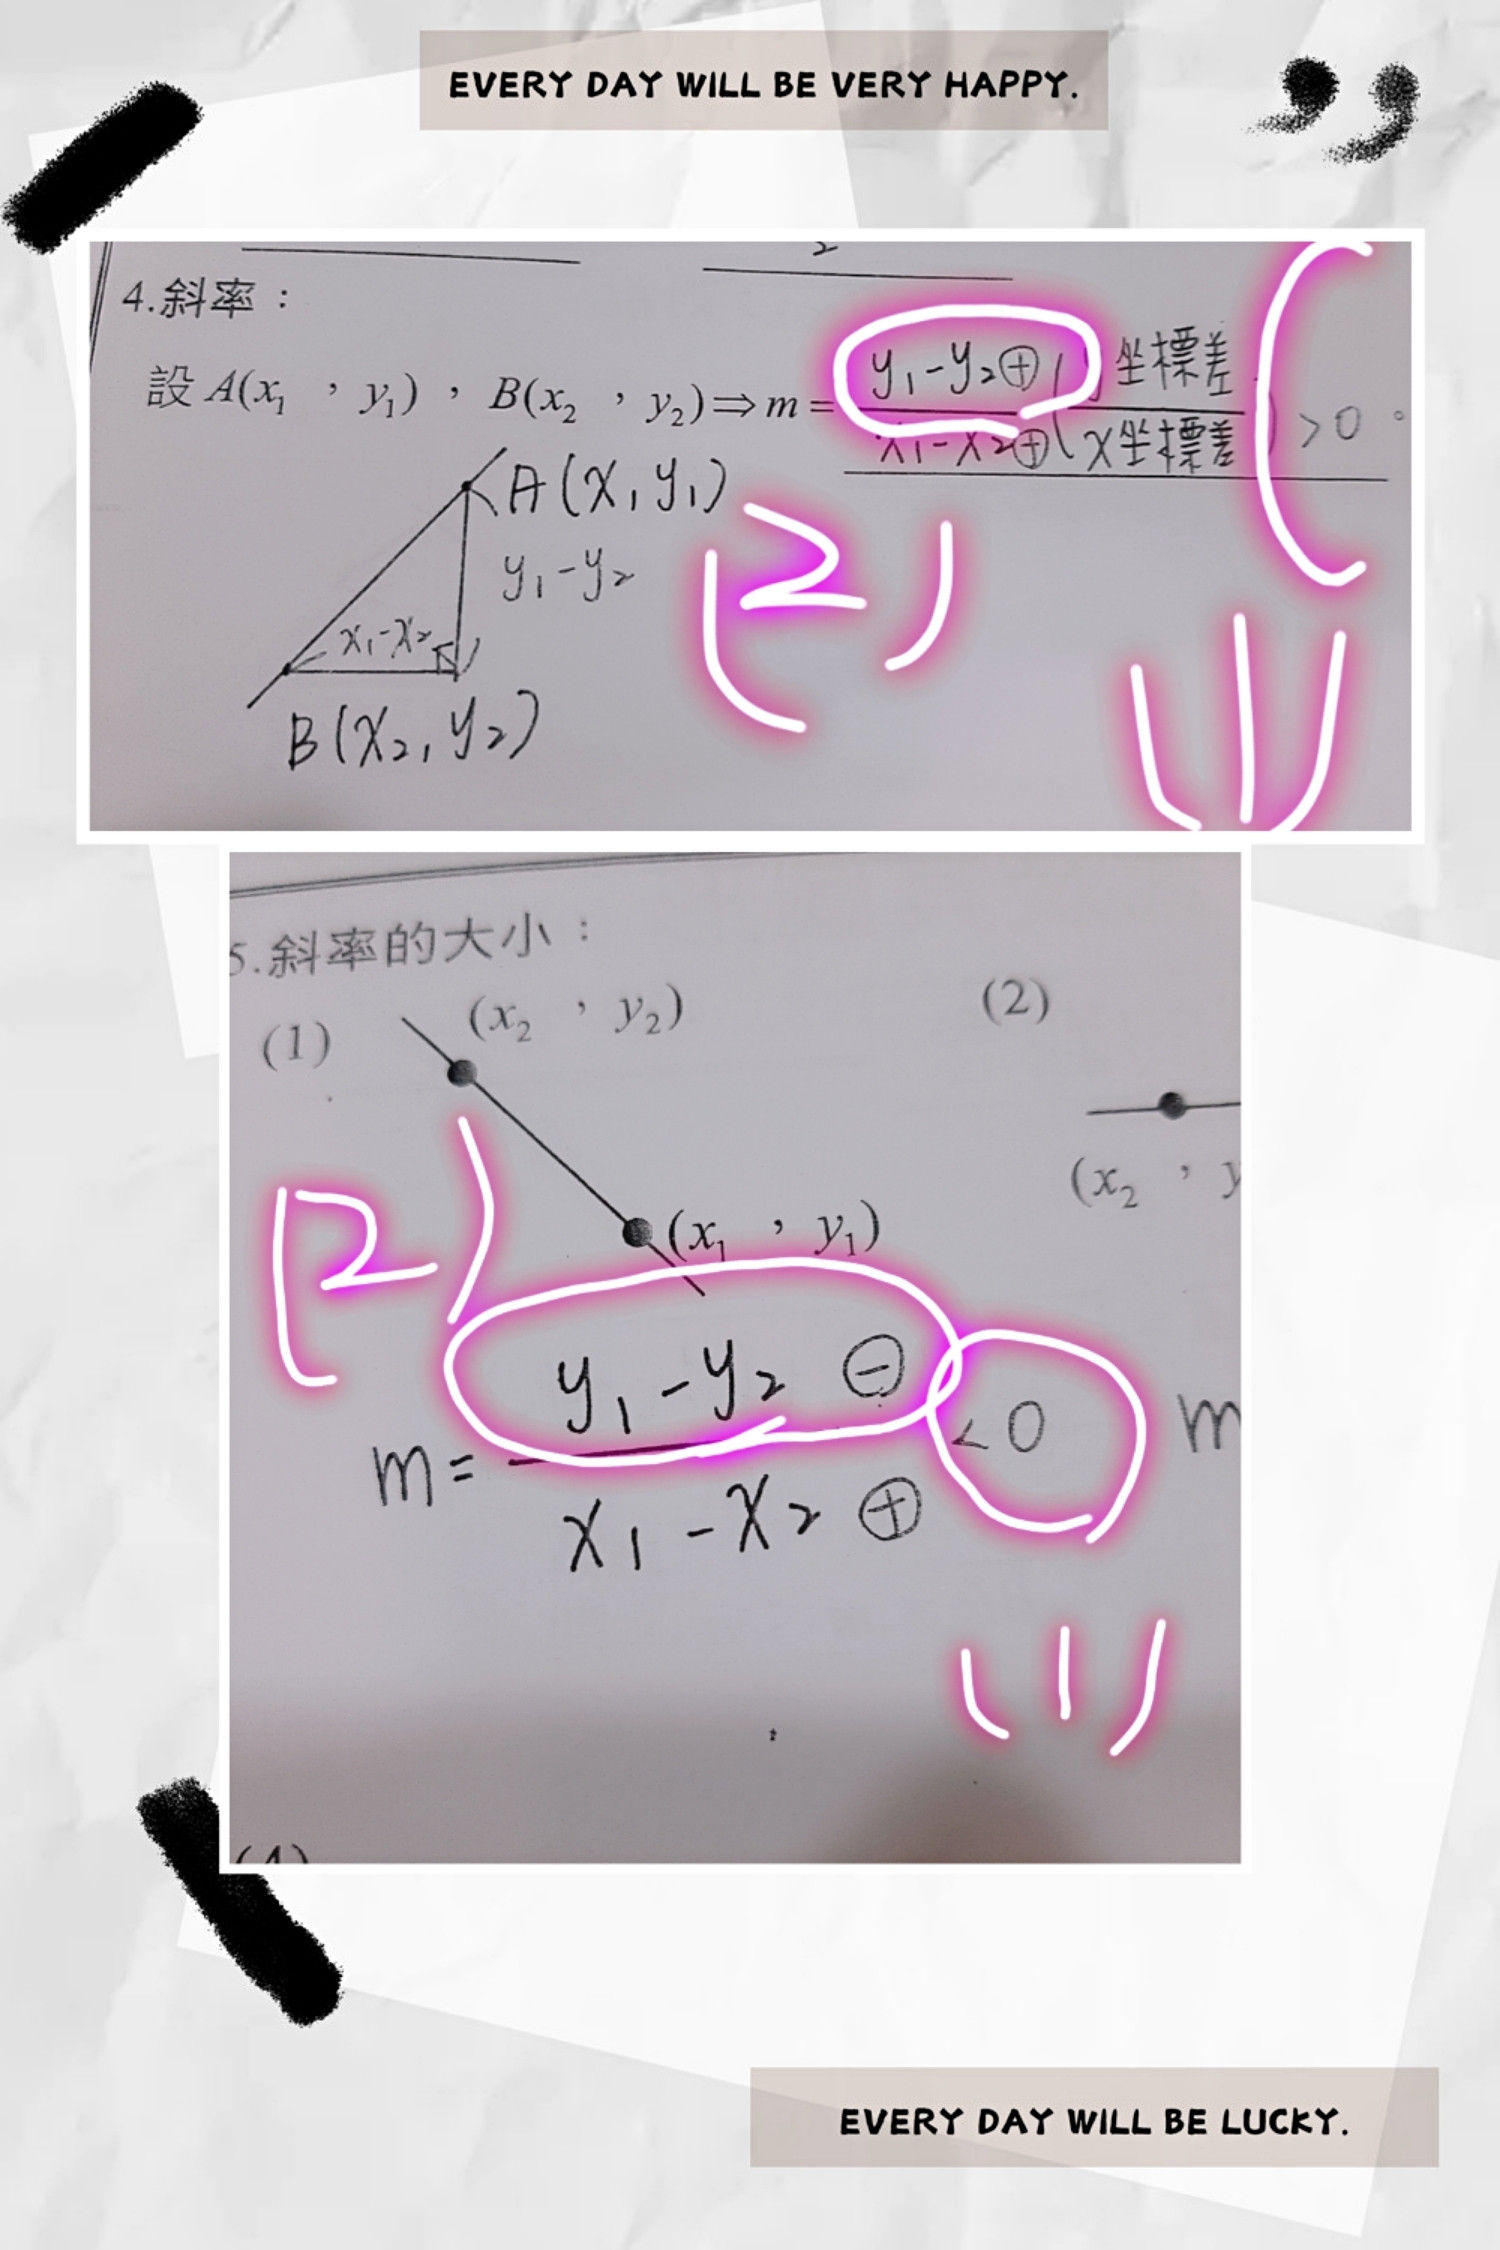 EVERY DAY WILL BE VERY HAPPY.
2
4.斜率：
設A(x₁，y₁)，B(x₂，y₂)⇒m=
y₁-y₂⊕(y坐標差
x₁-x₂⊕(x坐標差)>0。
A(x₁y₁)
y₁-y₂
x₁-x₂
B(x₂,y₂)
(2)
(1)
5.斜率的大小：
(1)
(x₂，y₂)
(2)
(x₁，y₁)
(x₂，y
(2)
y₁-y₂ ⊖
m= <0
m
x₁-x₂ ⊕
(1)
(4)
EVERY DAY WILL BE LUCKY.